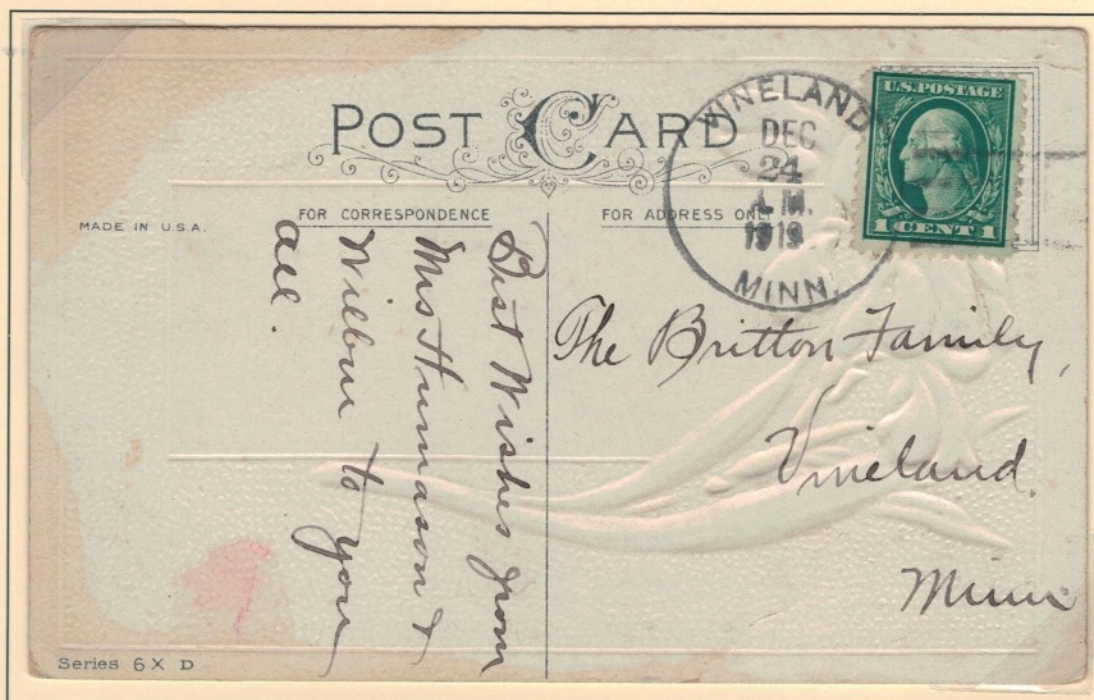 POST CARD
MADE IN U.S.A.
FOR CORRESPONDENCE
FOR ADDRESS ONLY
WINELAND
DEC
24
A.M.
1919
MINN.
U.S. POSTAGE
1 CENT 1
Best Wishes from
Mrs Humason &
Wilbur to you
all.
The Britton Family,
Vineland.
Minn
Series 6X D